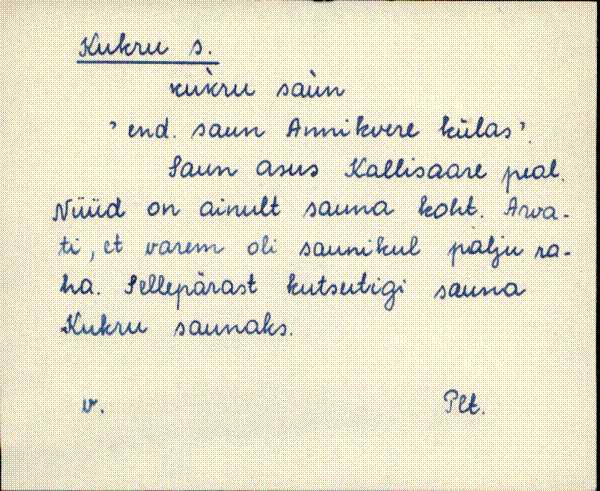 Kukru s.
kùkru saùn
' end. saun Annikvere külas'.
Saun asus Kallisaare peal.
Nüüd on ainult sauna koht. Arva-
ti, et varem oli saunikul palju ra-
ha. Sellepärast kutsutigi sauna
Kukru saunaks.
v. Plt.